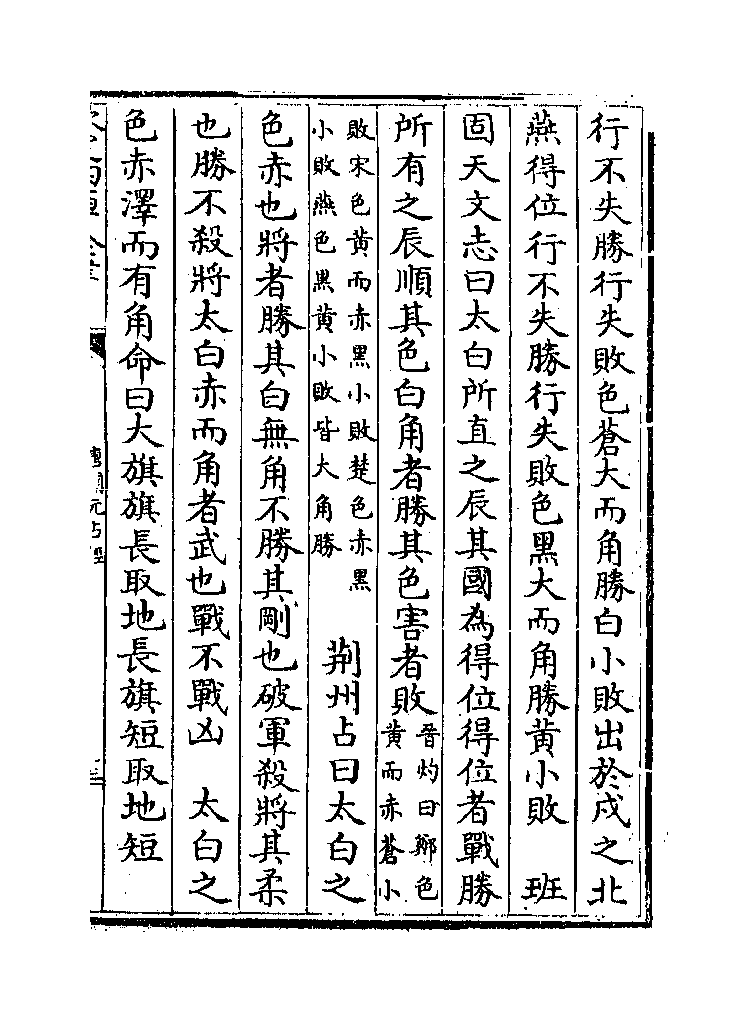 行不失勝行失敗色蒼大而角勝白小敗出於戌之北
燕得位行不失勝行失敗色黑大而角勝黄小敗　班
固天文志曰太白所直之辰其國為得位得位者戰勝
所有之辰順其色白角者勝其色害者敗晉灼曰鄭色黄而赤蒼小
敗宋色黄而赤黑小敗楚色赤黑小敗燕色黑黄小敗皆大角勝　荆州占曰太白之
色赤也將者勝其白無角不勝其剛也破軍殺將其柔
也勝不殺將太白赤而角者武也戰不戰凶　太白之
色赤澤而有角命曰大旗旗長取地長旗短取地短
唐開元占經